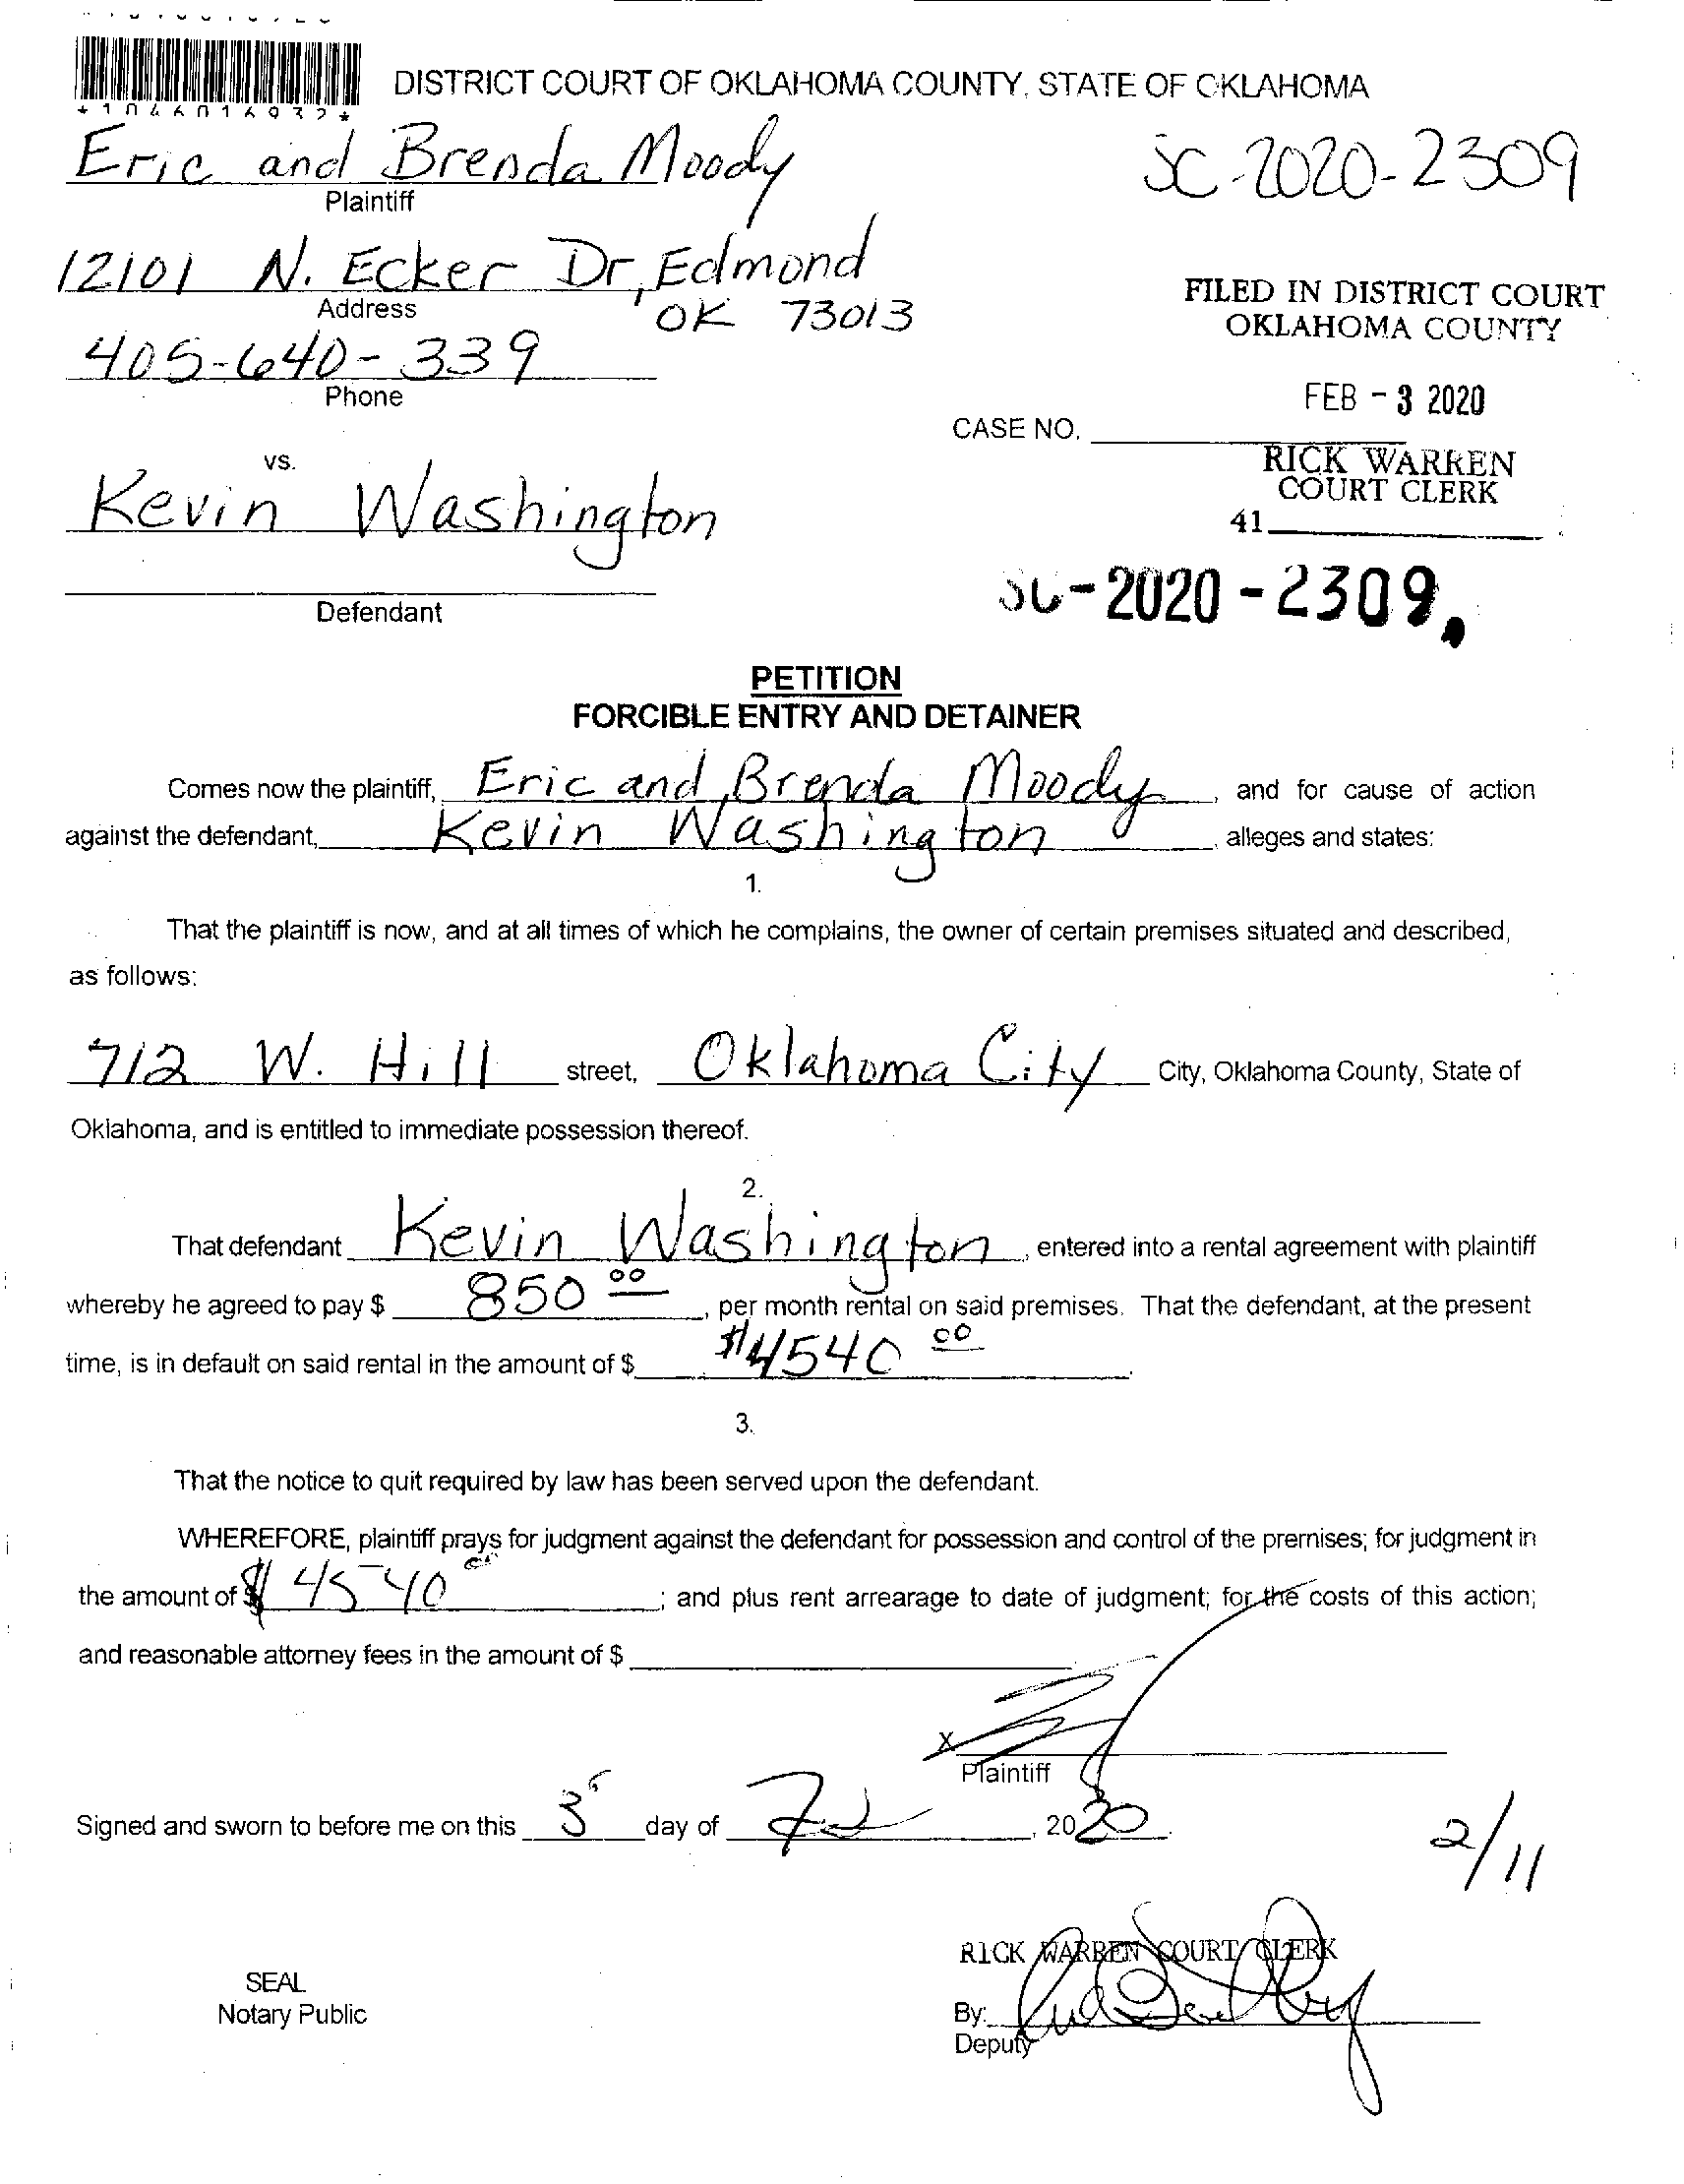 *1046016932*
DISTRICT COURT OF OKLAHOMA COUNTY, STATE OF OKLAHOMA
Eric and Brenda Moody
Plaintiff
SC-2020-2309
12101 N. Ecker Dr, Edmond
Address
OK 73013
405-640-339
Phone
FILED IN DISTRICT COURT
OKLAHOMA COUNTY
FEB - 3 2020
CASE NO.
RICK WARREN
COURT CLERK
41
vs.
Kevin Washington
Defendant
SC-2020-2309
PETITION
FORCIBLE ENTRY AND DETAINER
Comes now the plaintiff, Eric and Brenda Moody, and for cause of action
against the defendant, Kevin Washington, alleges and states:
1.
That the plaintiff is now, and at all times of which he complains, the owner of certain premises situated and described,
as follows:
712 W. Hill street, Oklahoma City City, Oklahoma County, State of
Oklahoma, and is entitled to immediate possession thereof.
2.
That defendant Kevin Washington, entered into a rental agreement with plaintiff
whereby he agreed to pay $ 850 00, per month rental on said premises. That the defendant, at the present
time, is in default on said rental in the amount of $ $4540 00.
3.
That the notice to quit required by law has been served upon the defendant.
WHEREFORE, plaintiff prays for judgment against the defendant for possession and control of the premises; for judgment in
the amount of $ 4540 00; and plus rent arrearage to date of judgment; for the costs of this action;
and reasonable attorney fees in the amount of $
X
Plaintiff
Signed and sworn to before me on this 3 day of Feb, 2020.
2/11
RICK WARREN COURT CLERK
SEAL
Notary Public
By:
Deputy